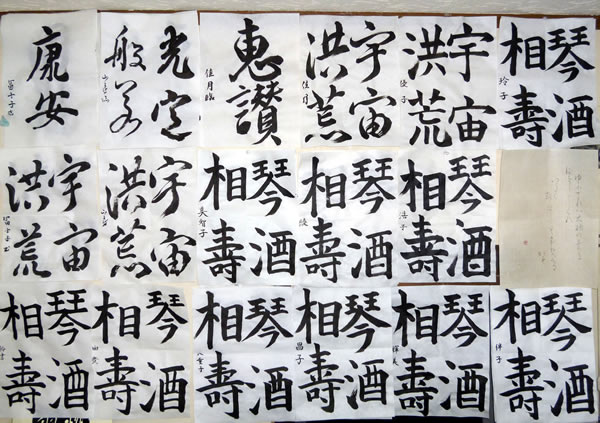 琴酒
相壽
玲子
宇宙
洪荒
宇宙
洪荒
佳月
惠讃
佳月臨
光定
般若
康安
琴酒
相壽
浩子
琴酒
相壽
琴酒
相壽
美智子
宇宙
洪荒
宇宙
洪荒
琴酒
相壽
琴酒
相壽
琴酒
相壽
昌子
琴酒
相壽
八重子
琴酒
相壽
琴酒
相壽